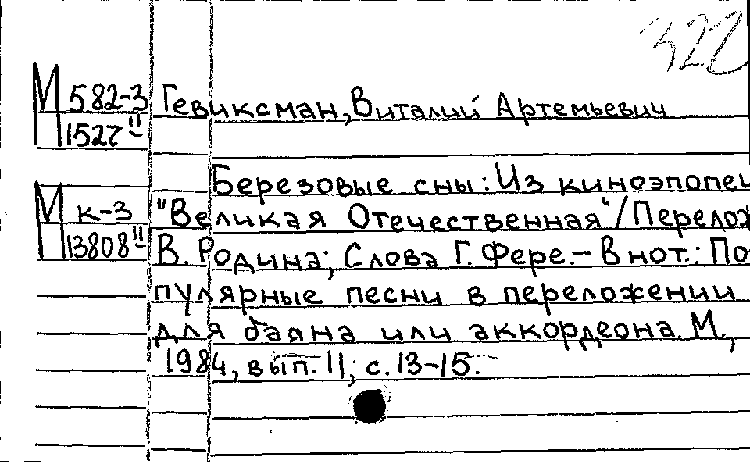 322
М 582-3
1527 II
Гевиксман, Виталий Артемьевич
Березовые сны: Из киноэпопеи
М к-3
13808 II
"Великая Отечественная"/Перелож
В. Родина; Слова Г. Фере.- В нот.: По-
пулярные песни в переложении
для баяна или аккордеона М.,
1984, вып. 11, с. 13-15.